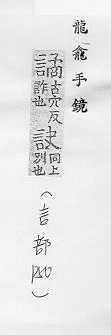 龍龕手鏡
譎古穴反詐也訣同上別也
（言部 P50）